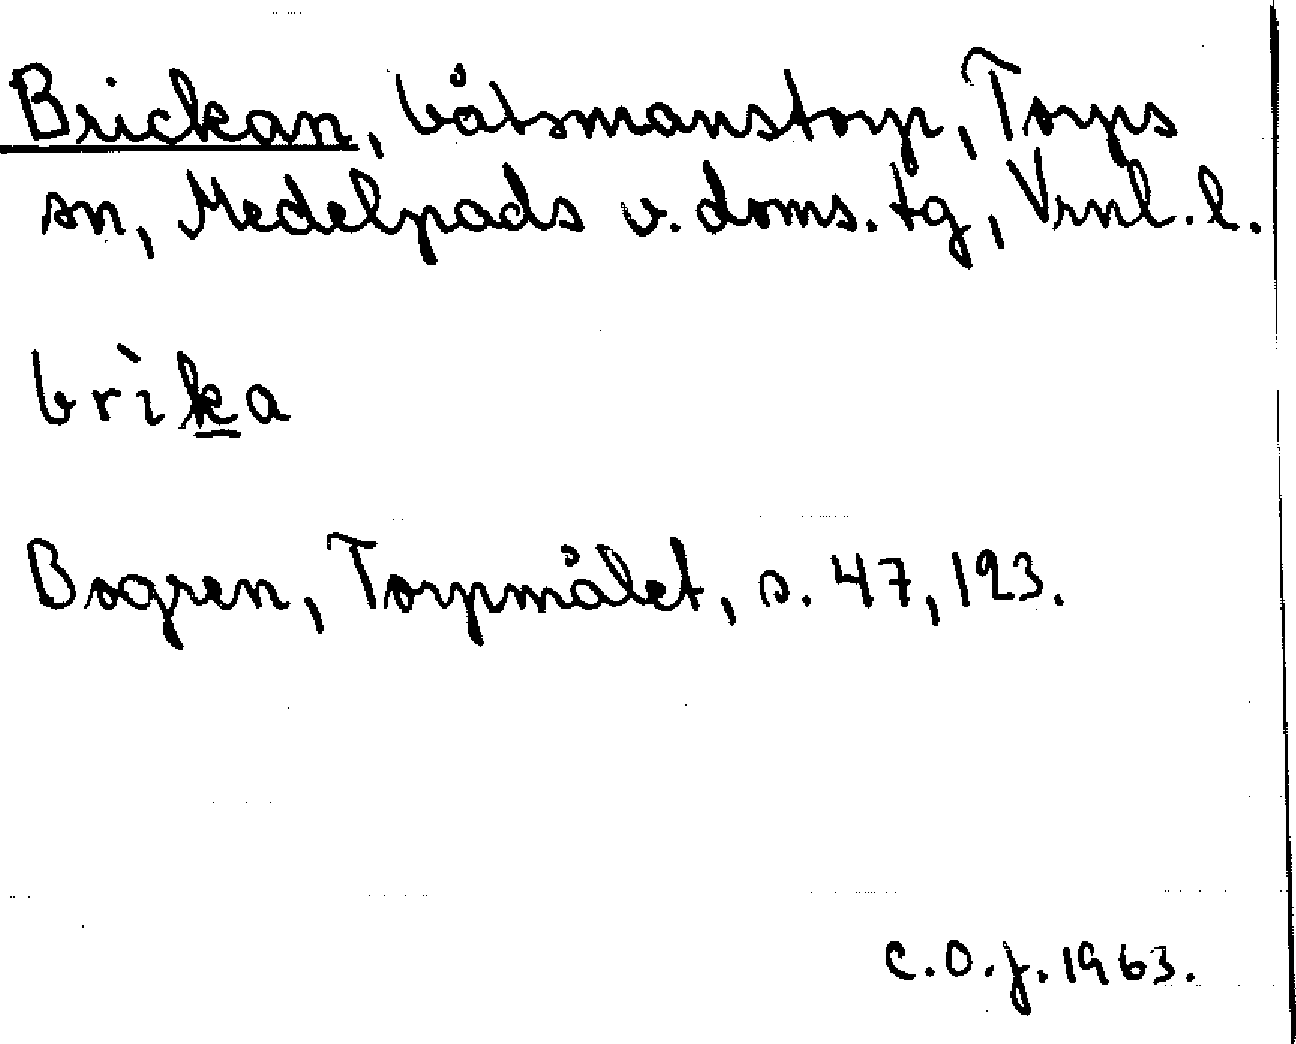 Brickan, båtsmanstorp, Torps
sn, Medelpads v. doms. tg, Vrnl. l.
brìka
Bogren, Torpmålet, s. 47, 123.
C.O.J. 1963.